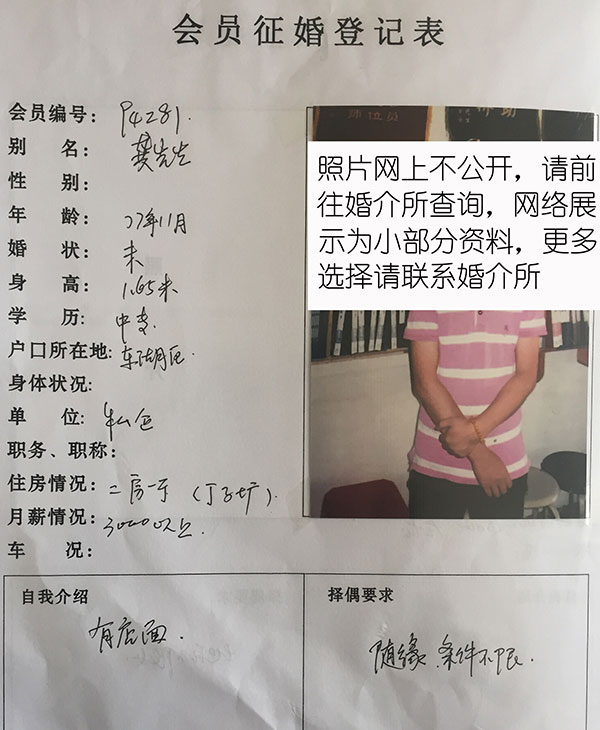 会员征婚登记表
会员编号: P4281.
别 名: 龚先生
性 别:
年 龄: 77年11月
婚 状: 未
身 高: 1.65米
学 历: 中专.
户口所在地: 东湖区.
身体状况:
单 位: 私企
职务、职称:
住房情况: 二房一厅 (丁公路).
月薪情况: 3000以上.
车 况:
照片网上不公开，请前
往婚介所查询，网络展
示为小部分资料，更多
选择请联系婚介所
自我介绍
有店面.
择偶要求
随缘.条件不限.